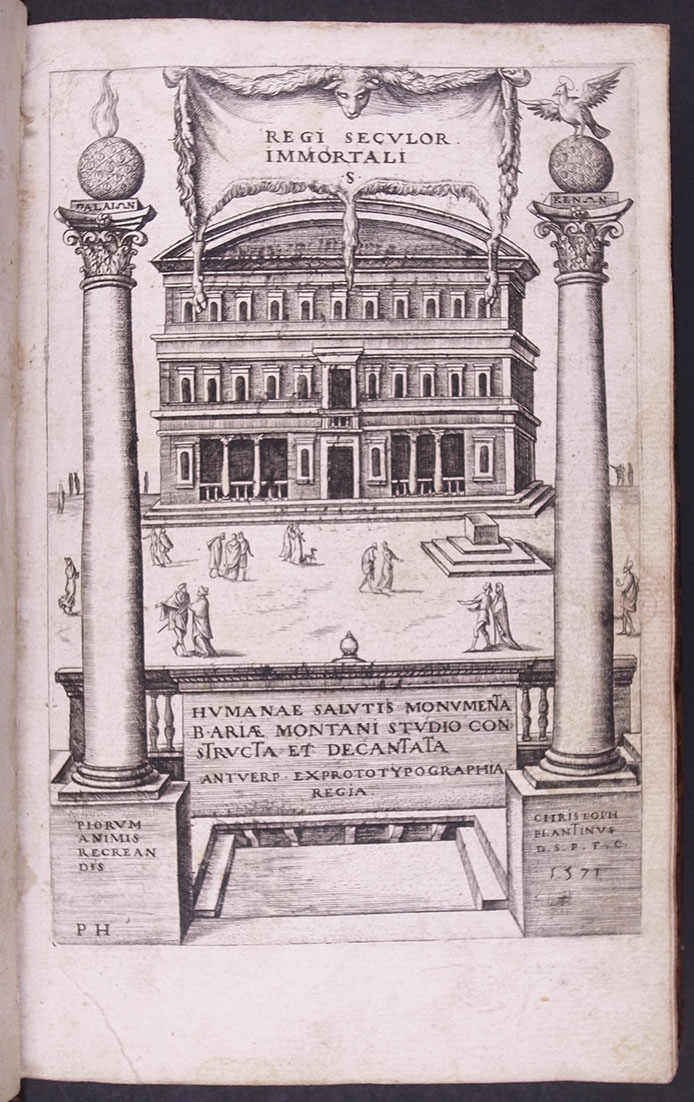 REGI SECVLOR.
IMMORTALI
S
PALAIΩN
KENΩN
HVMANAE SALVTIS MONVMENTA
B·ARIÆ MONTANI STVDIO CON,
STRVCTA ET DECANTATA
ANTVERP·EX PROTOTYPOGRAPHIA
REGIA.
PIORVM
ANIMIS
RECREAN
DIS
P H
CHRISTOPH
PLANTINVS
D.S.P.F.C.
1571